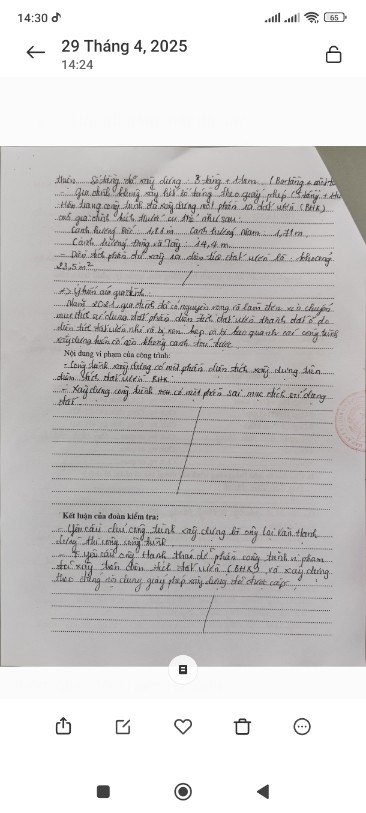 14:30
65
29 Tháng 4, 2025
14:24
thiếu Số tầng đã xây dựng: 3 tầng + tum. (Ba tầng +
- Gia đình không xây hết số tầng theo giấy phép (
Hiện trạng công trình đã xây dựng một phần ra đất vườn (BHK)
của gia đình kích thước cụ thể như sau:
Cạnh hướng Bắc 1,11m Cạnh hướng Nam 1,71m.
Cạnh hướng Đông và Tây: 14,4 m
- Diện tích phần đã xây ra diện tích đất vườn là khoảng
23,5 m²
Ý kiến của gia đình:
Năm 2021, gia đình có nguyện vọng và làm đơn xin chuyển
mục đích sử dụng đất phần diện tích đất vườn thành đất ở do
diện tích đất vườn nhỏ và bị xen kẹp và bị bao quanh các công trình
xây dựng hiện có nên không canh tác được
Nội dung vi phạm của công trình:
- Công trình xây dựng có một phần diện tích xây dựng trên
diện tích đất vườn BHK
- Xây dựng công trình có một phần sai mục đích sử dụng
đất.
Kết luận của đoàn kiểm tra:
- Yêu cầu chủ công trình xây dựng là ông Lại Văn Hanh
dừng thi công công trình
- Yêu cầu ông Hanh tháo dỡ phần công trình vi phạm
đã xây trên diện tích đất vườn (BHK) và xây dựng
theo đúng nội dung giấy phép xây dựng đã được cấp.